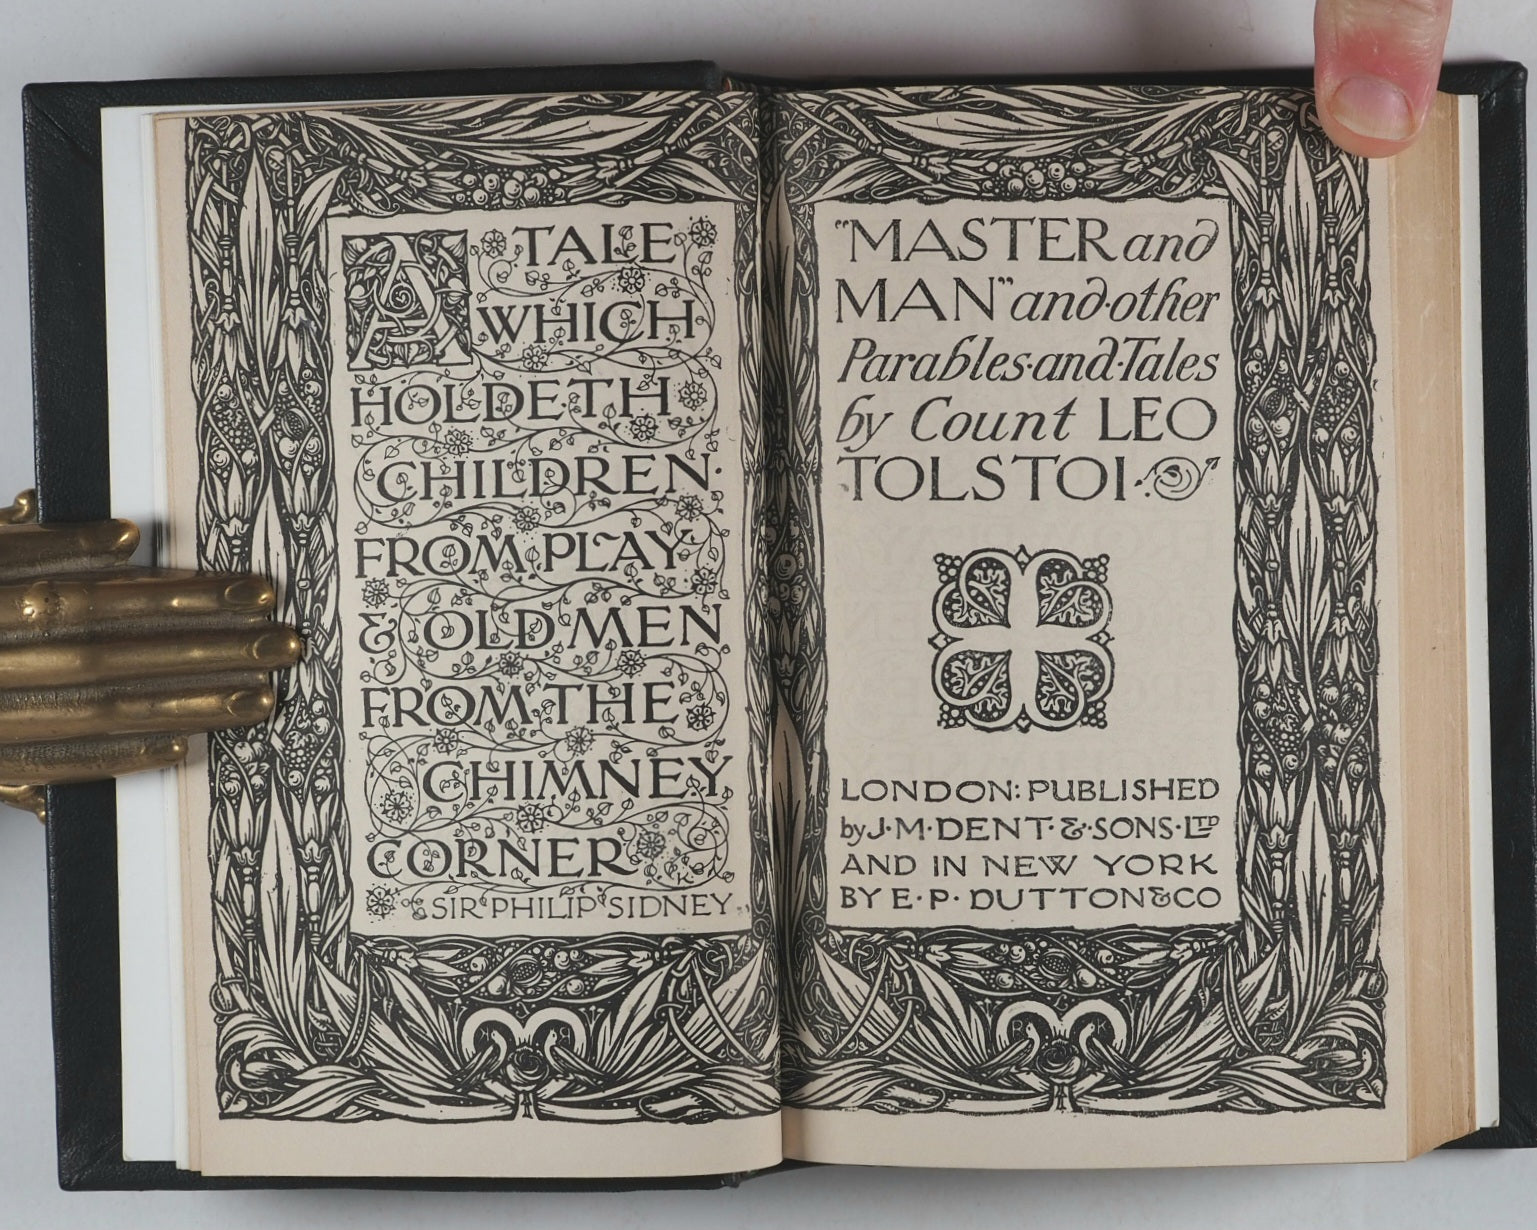 A TALE
WHICH
HOLDETH
CHILDREN
FROM PLAY
& OLD MEN
FROM THE
CHIMNEY
CORNER
SIR PHILIP SIDNEY
"MASTER and
MAN" and·other
Parables·and·Tales
by Count LEO
TOLSTOI·
LONDON: PUBLISHED
by J·M·DENT·&·SONS·LTD
AND IN NEW YORK
BY E·P·DUTTON&CO